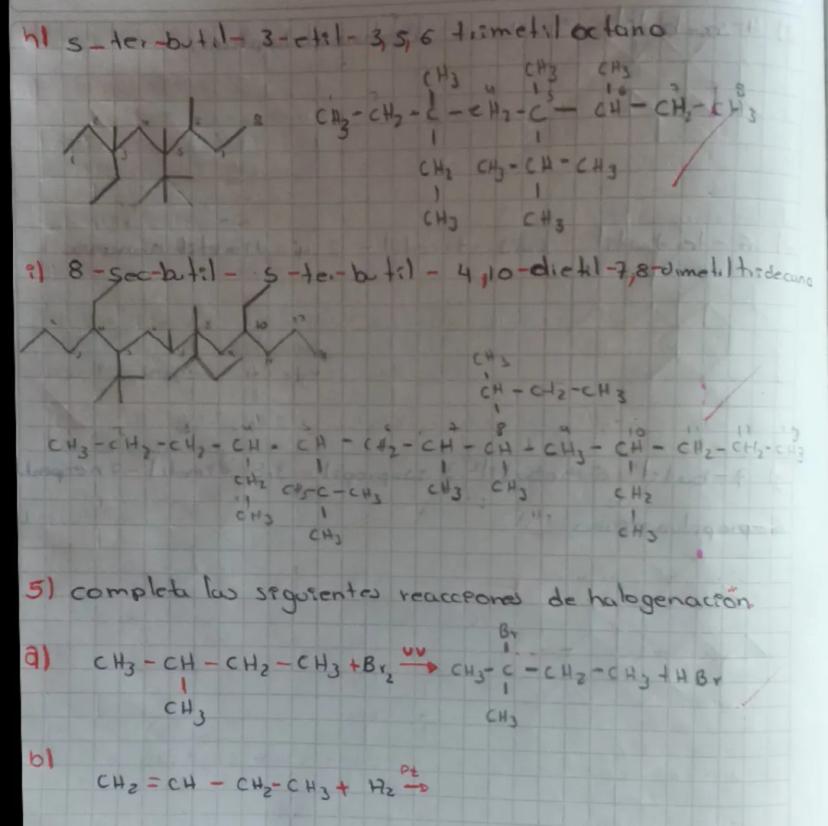 h) 5-ter-butil-3-etil-3,5,6 trimetil octano
CH3 CH3 CH3
CH3-CH2-C-CH2-C-CH-CH2-CH3
CH2 CH3-CH-CH3
CH3 CH3
i) 8-sec-butil-5-ter-butil-4,10-dietil-7,8-dimetiltridecano
CH3
CH-CH2-CH3
CH3-CH2-CH2-CH-CH-CH2-CH-CH-CH3-CH-CH2-CH2-CH3
CH2 CH3-C-CH3 CH3 CH3 CH2
CH3 CH3 CH3
5) completa las siguientes reacciones de halogenación
Br
a) CH3-CH-CH2-CH3+Br2 UV→ CH3-C-CH2-CH3+HBr
CH3 CH3
b)
CH2=CH-CH2-CH3+ H2 Pt→